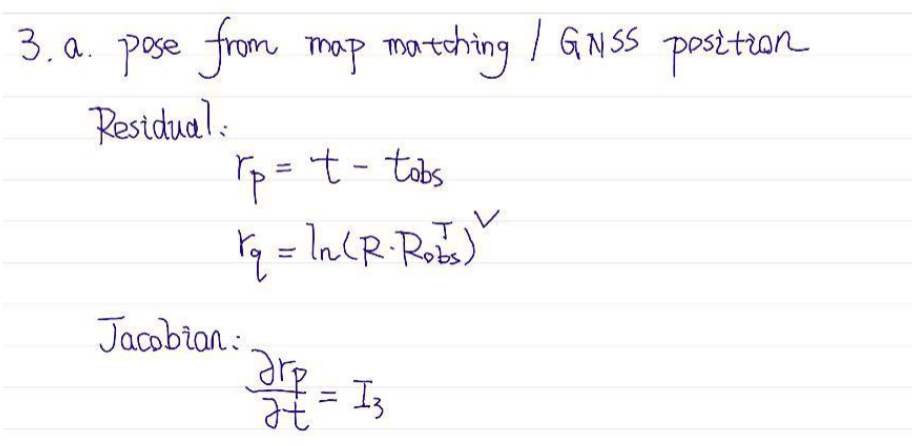 3. a. pose from map matching / GNSS position
Residual:
r_p = t - t_obs
r_q = ln(R·R_obs^T)^∨
Jacobian:
∂r_p/∂t = I_3